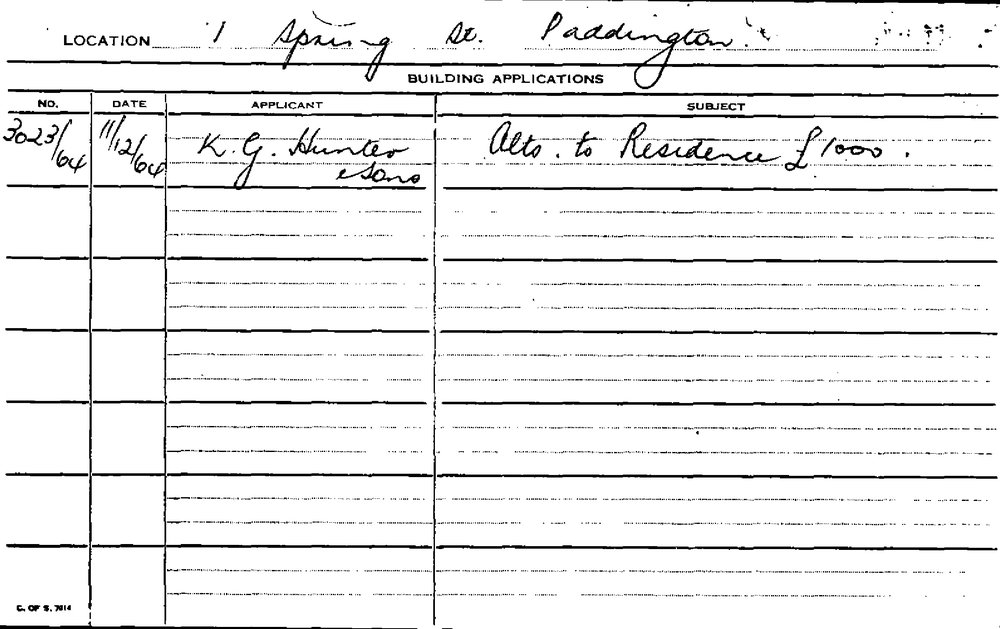 LOCATION 1 Spring St. Paddington.
BUILDING APPLICATIONS
NO. DATE APPLICANT SUBJECT
3023/64 11/12/64 K. G. Hunter Alts. to Residence £1000.
& Sons
C. OF S. 7614